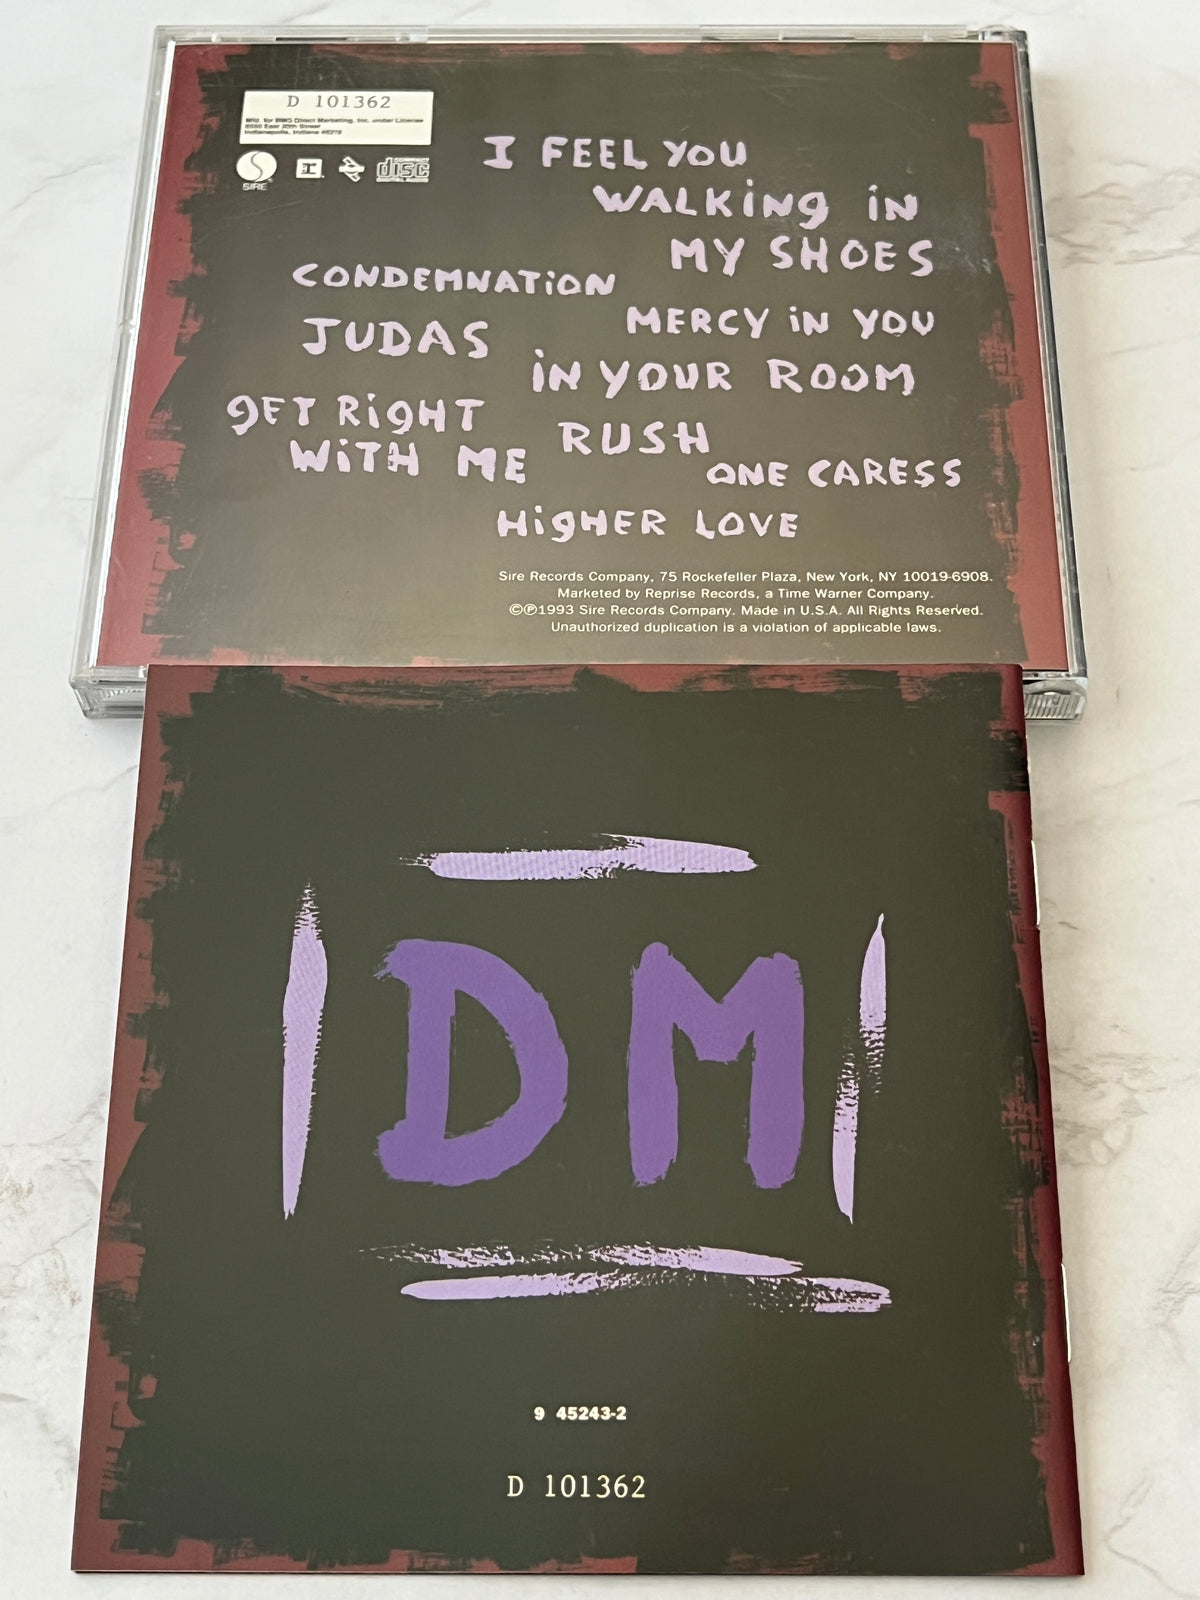 D 101362
Mfd. for BMG Direct Marketing, Inc. under License
6550 East 30th Street
Indianapolis, Indiana 46219
SIRE
COMPACT
disc
DIGITAL AUDIO
I FEEL YOU
WALKiNg iN
MY SHOES
CONDEMNATiON
MERCY iN YOU
JUDAS
iN YOUR ROOM
gET RigHT
WiTH ME
RUSH
ONE CARESS
HigHER LOVE
Sire Records Company, 75 Rockefeller Plaza, New York, NY 10019-6908.
Marketed by Reprise Records, a Time Warner Company.
©℗1993 Sire Records Company. Made in U.S.A. All Rights Reserved.
Unauthorized duplication is a violation of applicable laws.
DM
9 45243-2
D 101362